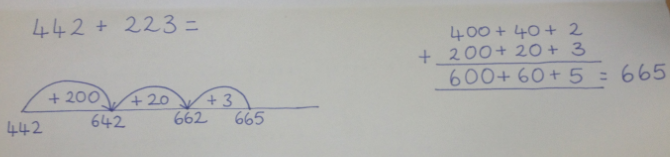 442 + 223 =
+200 +20 +3
442 642 662 665
400 + 40 + 2
+ 200 + 20 + 3
600 + 60 + 5 = 665